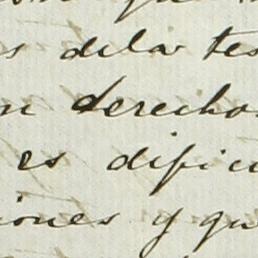 s dela tes
n derecho
es dificu
iones y qu